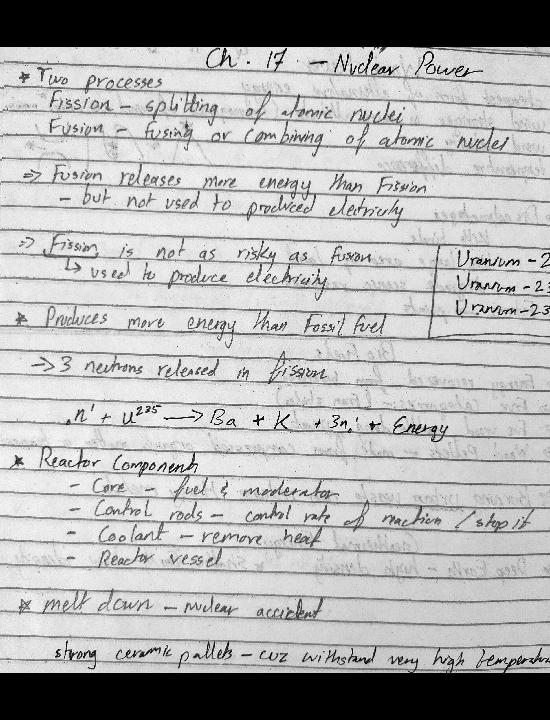 Ch. 17 - Nuclear Power
* Two processes
Fission - splitting of atomic nuclei
Fusion - fusing or combining of atomic nuclei
=> Fusion releases more energy than Fission
- but not used to produced electricity
=> Fission is not as risky as fusion
↳ used to produce electricity
Uranium - 2
Uranium - 23
Uranium - 23
* Produces more energy than Fossil fuel
-> 3 neutrons released in fission
₀n¹ + U²³⁵ -> Ba + K + 3n₀¹ + Energy
* Reactor Components
- Core - fuel & moderator
- Control rods - control rate of reaction / stop it
- Coolant - remove heat
- Reactor vessel
* melt down - nuclear accident
strong ceramic pallets - cuz withstand very high temperature